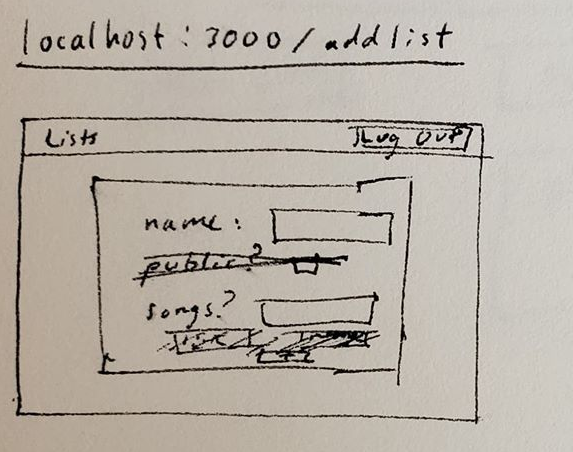 localhost: 3000/addlist
Lists Log Out
name:
public?
songs?